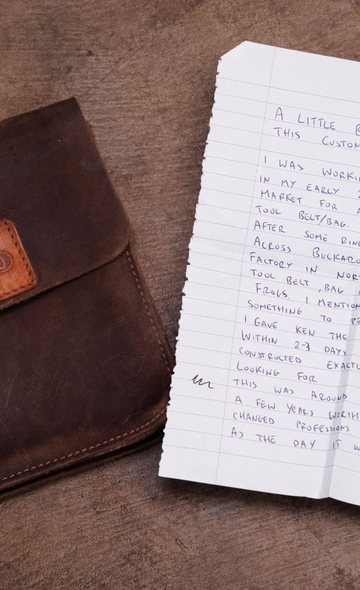 A LITTLE B
THIS CUSTOM
I WAS WORKI
IN MY EARLY 2
MARKET FOR
TOOL BELT/BAG.
AFTER SOME RIN
ACROSS BUCKARO
FACTORY IN NOR
TOOL BELT, BAG
FROGS. I MENTION
SOMETHING TO PE
I GAVE KEN THE
WITHIN 2-3 DAYS
CONSTRUCTED EXACTL
LOOKING FOR
THIS WAS AROUND
A FEW YEARS WORTH
CHANGED PROFESSIONS
AS THE DAY IT W